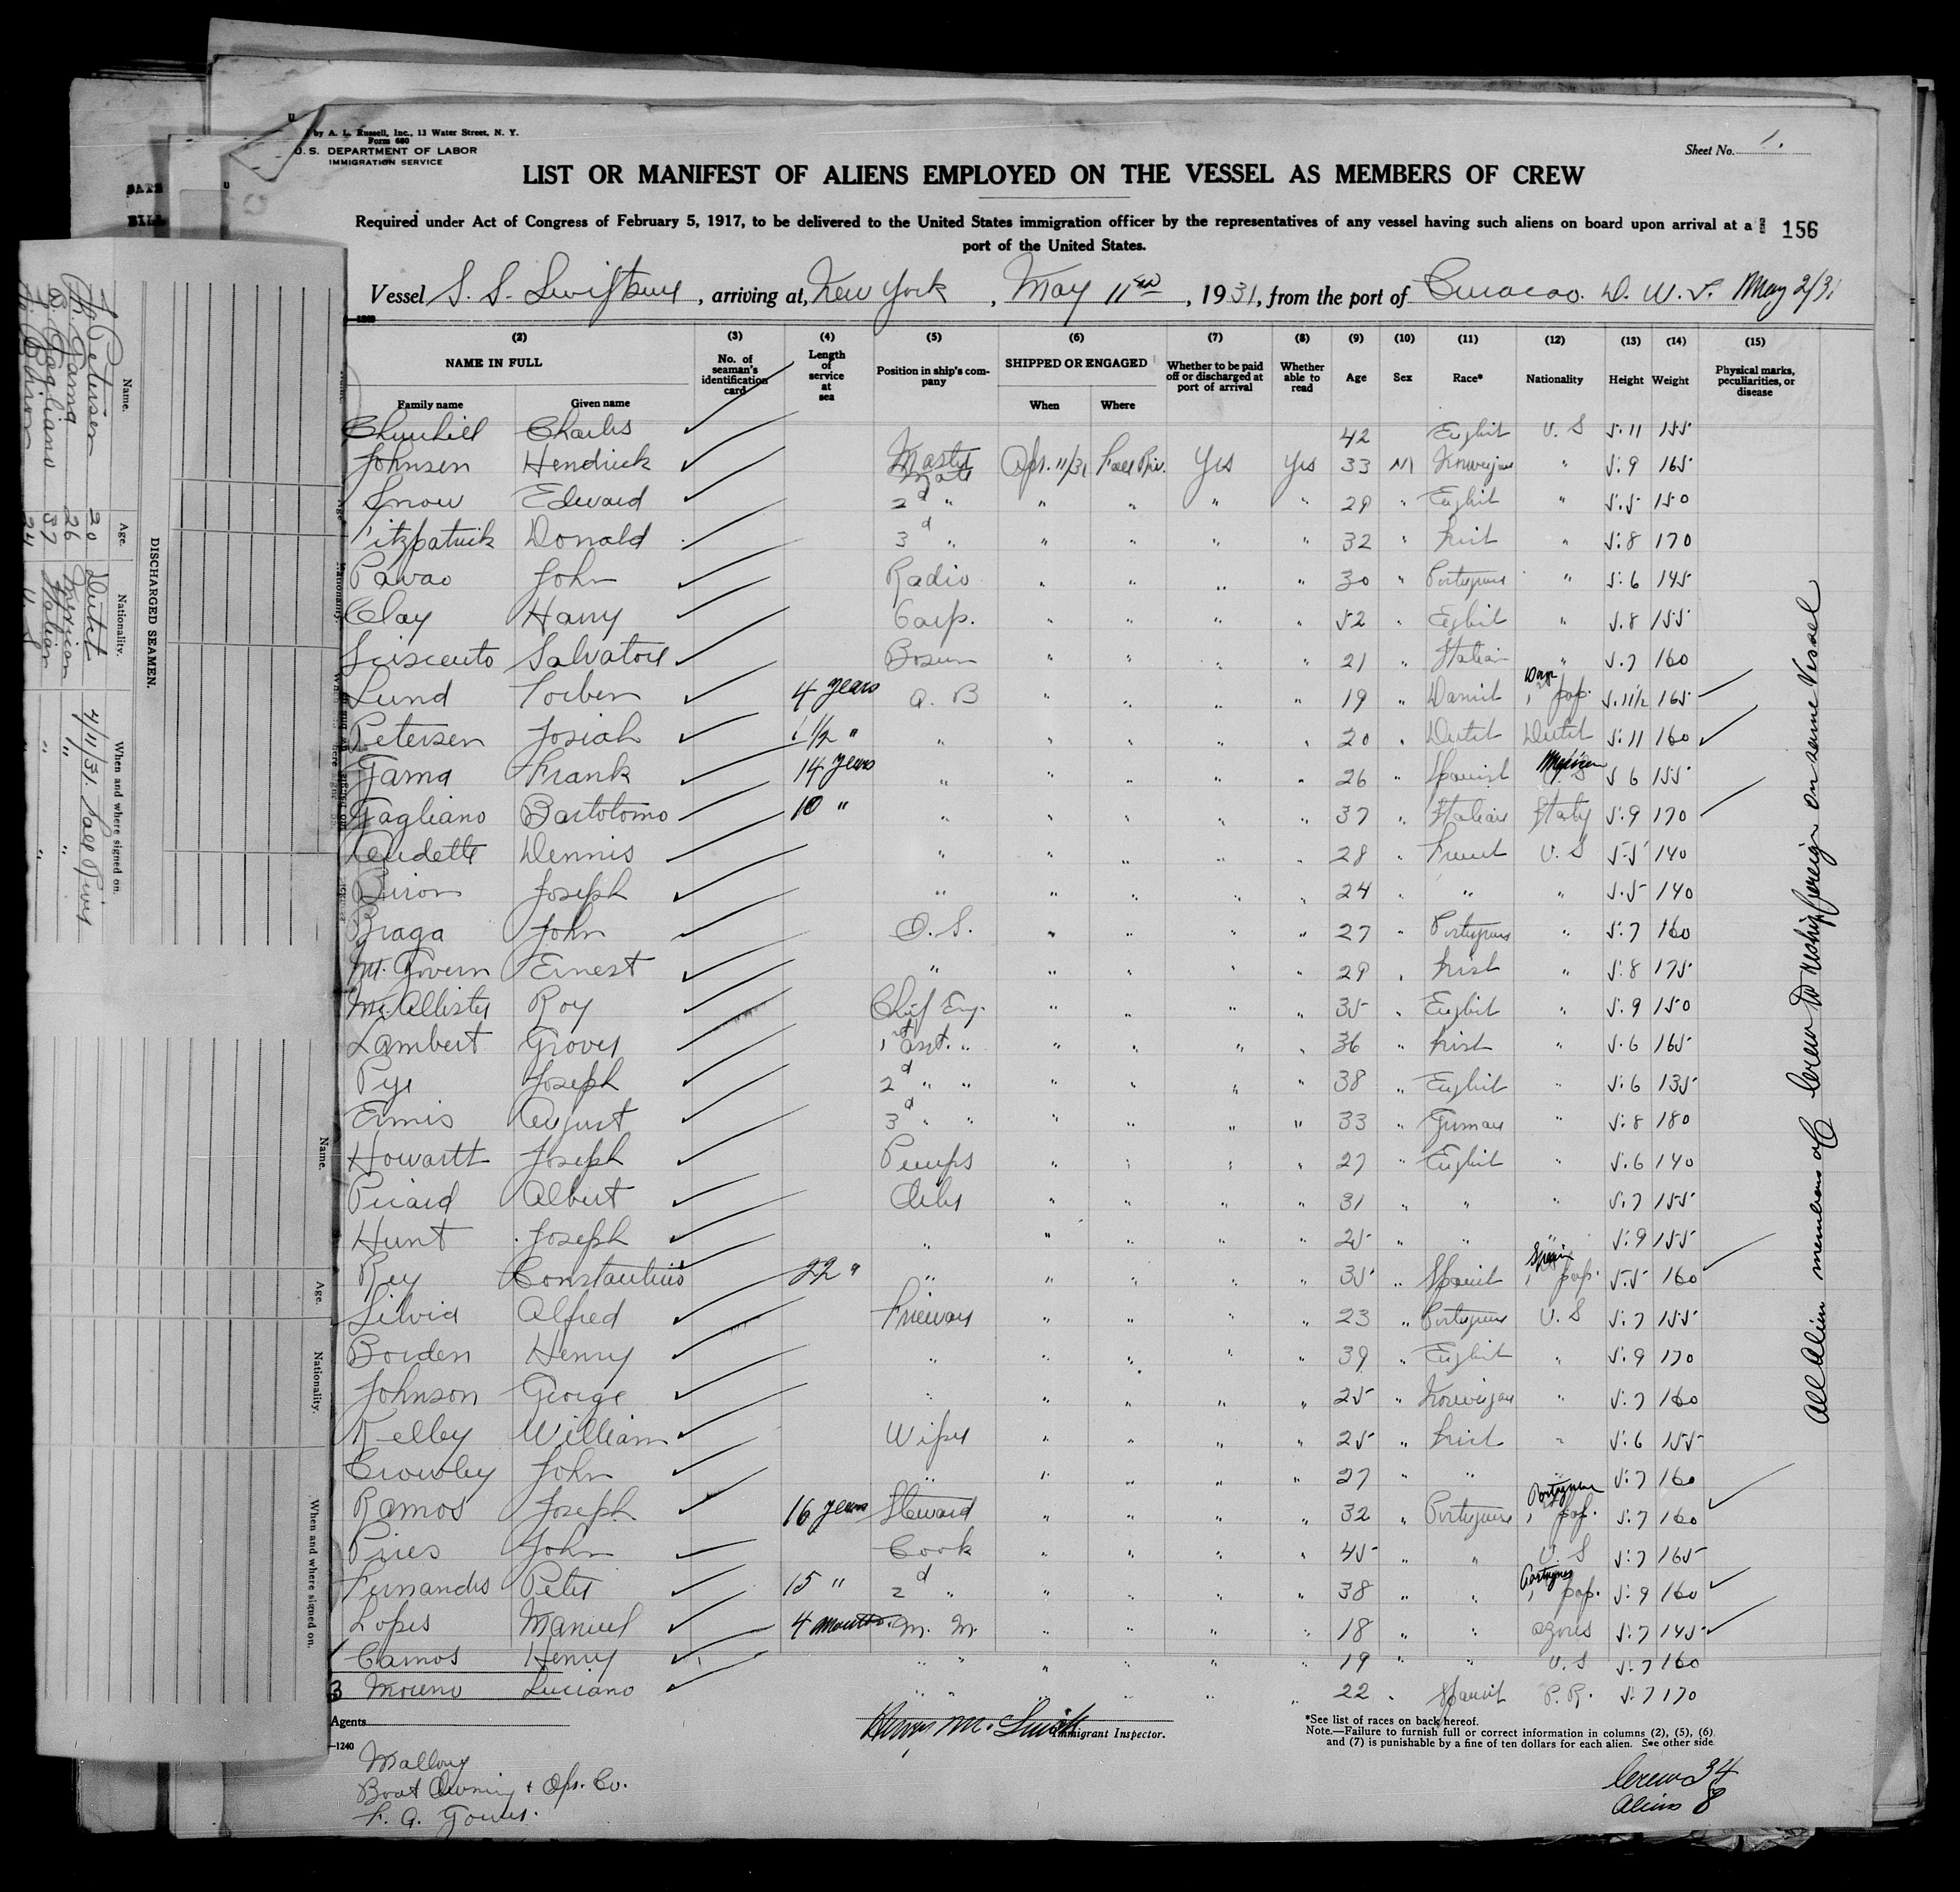 by A. L. Russell, Inc., 13 Water Street, N. Y.
Form 680
U. S. DEPARTMENT OF LABOR
IMMIGRATION SERVICE
Sheet No. 1.
LIST OR MANIFEST OF ALIENS EMPLOYED ON THE VESSEL AS MEMBERS OF CREW
Required under Act of Congress of February 5, 1917, to be delivered to the United States immigration officer by the representatives of any vessel having such aliens on board upon arrival at a
port of the United States.
156
Vessel S. S. , arriving at, New York , May 11 , 1931, from the port of Curacao. D. W. I. May 2/31
(2) (3) (4) (5) (6) (7) (8) (9) (10) (11) (12) (13) (14) (15)
NAME IN FULL No. of seaman's identification card Length of service at sea Position in ship's company SHIPPED OR ENGAGED Whether to be paid off or discharged at port of arrival Whether able to read Age Sex Race* Nationality Height Weight Physical marks, peculiarities, or disease
Family name Given name When Where
Churchill Charles 42 English U. S 5:11 155
Johnsen Hendrick Master Mate Apr. 11/31 Fall Riv. Yes Yes 33 M Norwegian " 5:9 165
Snow Edward 2d " " " " " 29 " English " 5:5 150
Fitzpatrick Donald 3d " " " " " 32 " Irish " 5:8 170
Pavao John Radio " " " " 30 " Portuguese " 5:6 145
Clay Harry Carp. " " " " 52 " English " 5:8 155
Salvatore Bosun " " " " 21 " Italian " 5:7 160
Lund Torben 4 years A. B " " " " 19 " Danish Dan pap. 5:11 1/2 165
Petersen Josiah 1 1/2 " " " " " " 20 " Dutch Dutch 5:11 160
Gama Frank 14 years " " " " " 26 " Spanish Mexican 5 6 155
Gagliano Bartolomo 10 " " " " " " 37 " Italian Italy 5:9 170
Dennis " " " " " 28 " French U. S 5:5 140
Biron Joseph " " " " " 24 " " " 5:5 140
Braga John O. S. " " " " 27 " Portuguese " 5:7 160
McGovern Ernest " " " " " 29 " Irish " 5:8 175
McAllister Roy Chief Eng. " " " " 35 " English " 5:9 150
Lambert Grover 1st Asst. " " " " " 36 " Irish " 5:6 165
Pye Joseph 2d " " " " " " 38 " English " 5:6 135
Ennis August 3d " " " " " " 33 " German " 5:8 180
Howarth Joseph Pumps " " " " 27 " English " 5:6 140
Picard Albert Oiler " " " " 31 " " " 5:7 155
Hunt Joseph " " " " " 25 " " " 5:9 155
Rey Constantino 22 " " " " " " 35 " Spanish Spain pap. 5:5 160
Silvia Alfred Fireman " " " " 23 " Portuguese U. S 5:7 155
Borden Henry " " " " " 39 " English " 5:9 170
Johnson George " " " " " 25 " Norwegian " 5:7 160
Kelley William Wiper " " " " 25 " Irish " 5:6 155
Crowley John " " " " " 27 " " " 5:7 160
Ramos Joseph 16 years Steward " " " " 32 " Portuguese Portuguese pap. 5:7 160
Pires John Cook " " " " 45 " " U. S 5:7 165
Fernandes Peter 15 " 2d " " " " " 38 " " Portuguese pap. 5:9 160
Lopes Manuel 4 months M. M. " " " " 18 " " Azores 5:7 145
Camos Henry " " " " " " 19 " " U. S 5:7 160
Moreno Luciano " " " " " " 22 " Spanish P. R. 5:7 170
All Alien members of Crew to reship foreign on same Vessel
Agents
—1240
Mallory
Boat Owning + Ops. Co.
Immigrant Inspector.
*See list of races on back hereof.
Note.—Failure to furnish full or correct information in columns (2), (5), (6)
and (7) is punishable by a fine of ten dollars for each alien. See other side
Crew 34
Aliens 8
DISCHARGED SEAMEN.
Name. Age. Nationality. When and where signed on.
J. Petersen 20 Dutch 4/11/31. Fall River
F. Gama 26 Mexican " "
B. Gagliano 37 Italian " "
Biron 24 U. S " "
Name. Age. Nationality. When and where signed on.